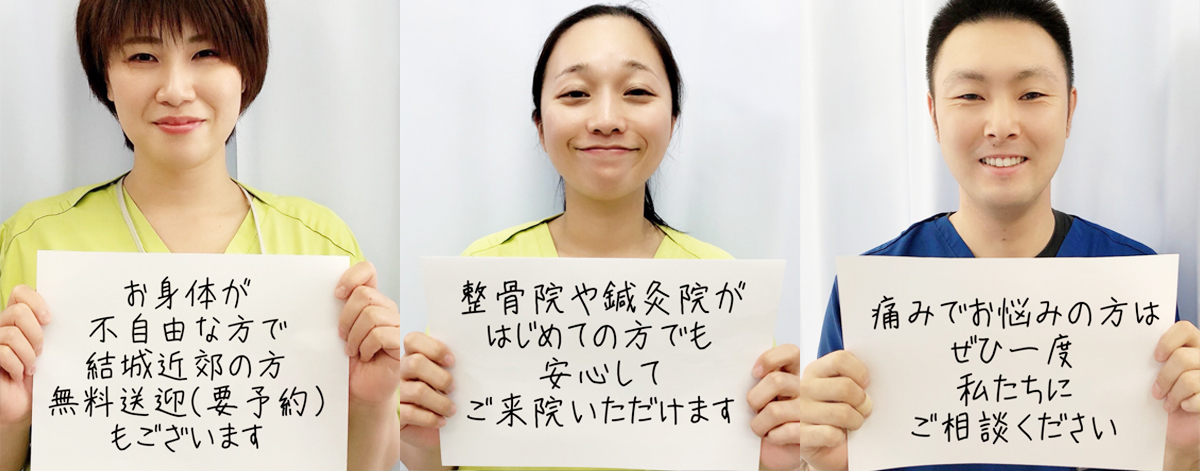 お身体が
不自由な方で
結城近郊の方
無料送迎(要予約)
もございます
整骨院や鍼灸院が
はじめての方でも
安心して
ご来院いただけます
痛みでお悩みの方は
ぜひ一度
私たちに
ご相談ください